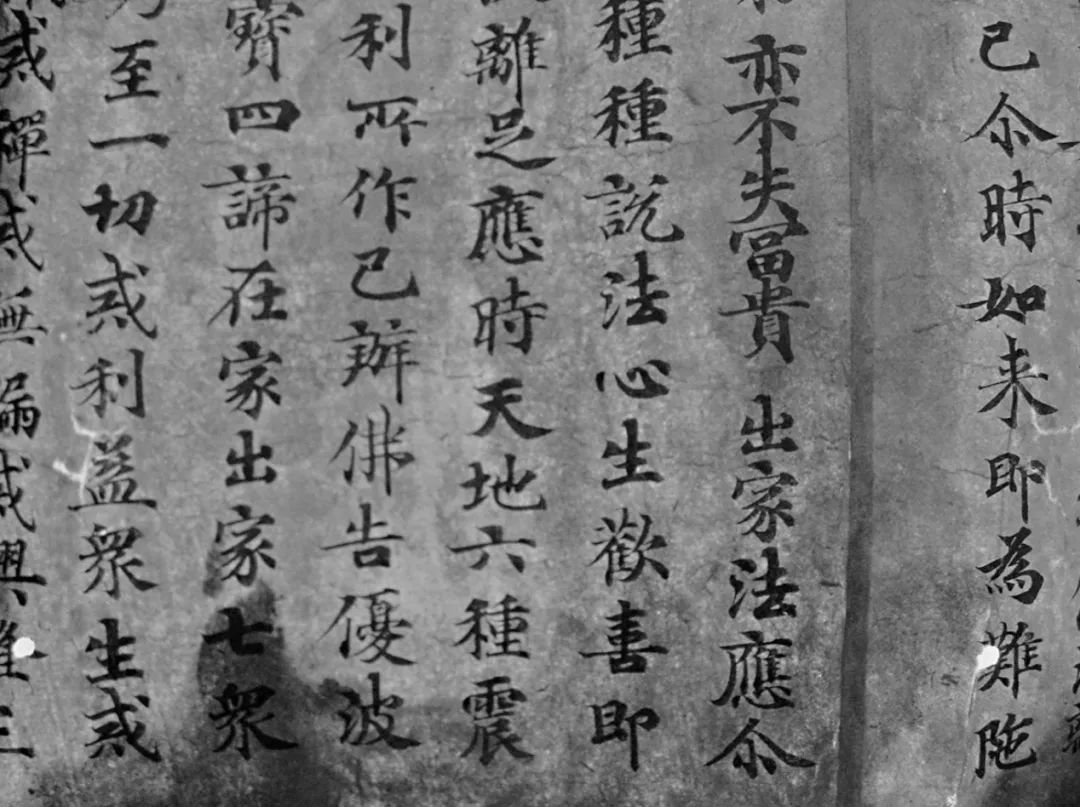 已尒時如来即為難陁
亦不失冨貴出家法應尒
種種説法心生歡喜即
離足應時天地六種震
利所作已辦佛告優波
寳四諦在家出家七衆
至一切戒利益衆生戒
戒禪戒無漏戒興三